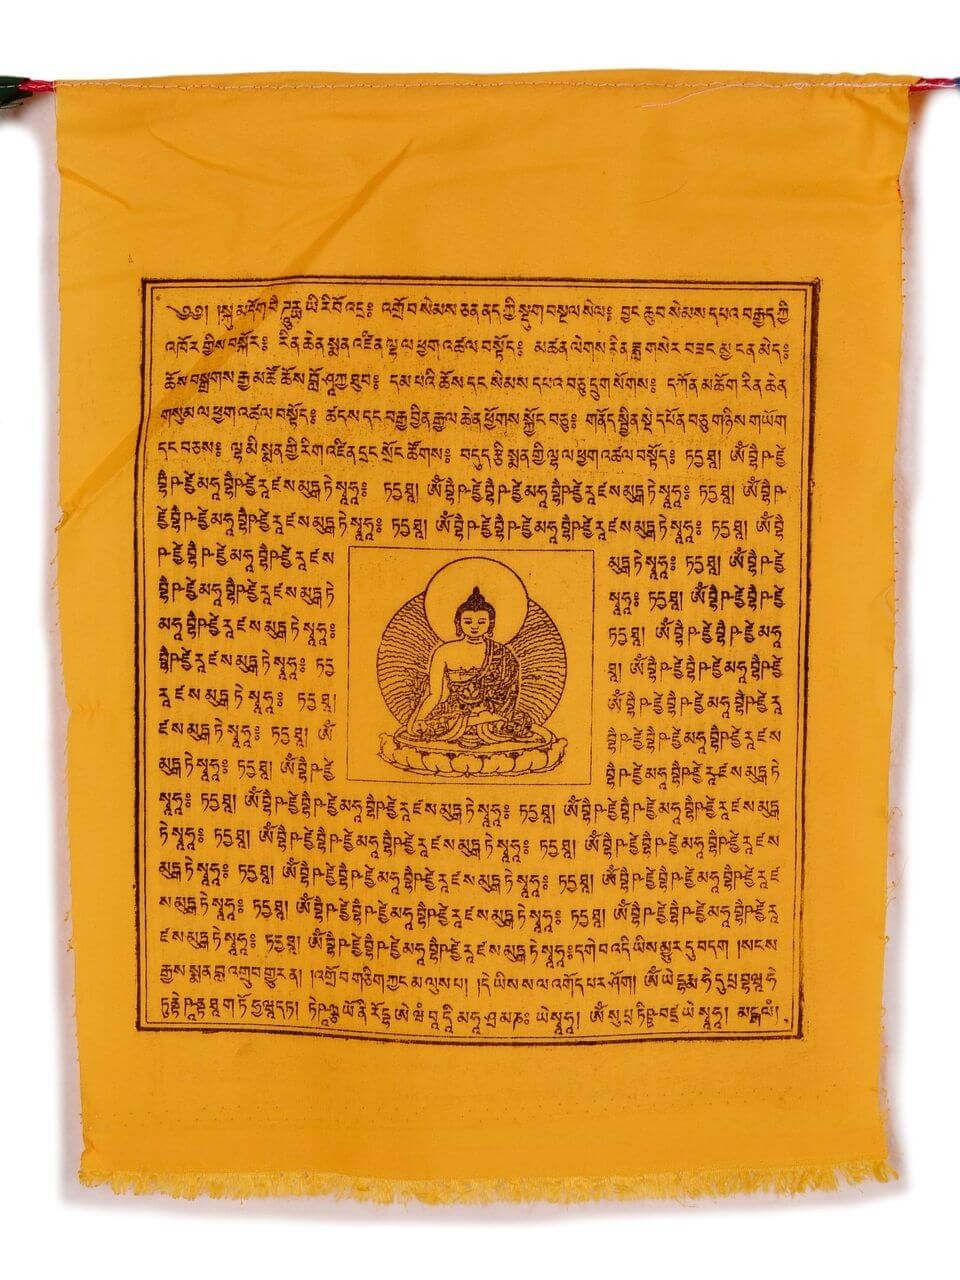 ༄༅། །སྐུ་མདོག་བཻ་ཌཱུརྻ་ཡི་རི་བོ་འདྲ༔ འགྲོ་བ་སེམས་ཅན་ནད་ཀྱི་སྡུག་བསྔལ་སེལ༔ བྱང་ཆུབ་སེམས་དཔའ་བརྒྱད་ཀྱི
འཁོར་གྱིས་བསྐོར༔ རིན་ཆེན་སྨན་འཛིན་ལྷ་ལ་ཕྱག་འཚལ་བསྟོད༔ མཚན་ལེགས་རིན་ཟླ་གསེར་བཟང་མྱ་ངན་མེད༔
ཆོས་བསྒྲགས་རྒྱ་མཚོ་ཆོས་བློ་ཤཱཀྱ་ཐུབ༔ དམ་པའི་ཆོས་དང་སེམས་དཔའ་བཅུ་དྲུག་སོགས༔ དཀོན་མཆོག་རིན་ཆེན
གསུམ་ལ་ཕྱག་འཚལ་བསྟོད༔ ཚངས་དང་བརྒྱ་བྱིན་རྒྱལ་ཆེན་ཕྱོགས་སྐྱོང་བཅུ༔ གནོད་སྦྱིན་སྡེ་དཔོན་བཅུ་གཉིས་གཡོག
དང་བཅས༔ ལྷ་མི་སྨན་གྱི་རིག་འཛིན་དྲང་སྲོང་ཚོགས༔ བདུད་རྩི་སྨན་གྱི་ལྷ་ལ་ཕྱག་འཚལ་བསྟོད༔ ཏདྱ་ཐཱ། ༀ་བྷཻ་ཥ་ཛྱེ
བྷཻ་ཥ་ཛྱེ་མཧཱ་བྷཻ་ཥ་ཛྱེ་རཱ་ཛ་ས་མུདྒ་ཏེ་སྭཱཧཱ༔ ཏདྱ་ཐཱ། ༀ་བྷཻ་ཥ་ཛྱེ་བྷཻ་ཥ་ཛྱེ་མཧཱ་བྷཻ་ཥ་ཛྱེ་རཱ་ཛ་ས་མུདྒ་ཏེ་སྭཱཧཱ༔ ཏདྱ་ཐཱ། ༀ་བྷཻ་ཥ
ཛྱེ་བྷཻ་ཥ་ཛྱེ་མཧཱ་བྷཻ་ཥ་ཛྱེ་རཱ་ཛ་ས་མུདྒ་ཏེ་སྭཱཧཱ༔ ཏདྱ་ཐཱ། ༀ་བྷཻ་ཥ་ཛྱེ་བྷཻ་ཥ་ཛྱེ་མཧཱ་བྷཻ་ཥ་ཛྱེ་རཱ་ཛ་ས་མུདྒ་ཏེ་སྭཱཧཱ༔ ཏདྱ་ཐཱ། ༀ་བྷཻ
ཥ་ཛྱེ་བྷཻ་ཥ་ཛྱེ་མཧཱ་བྷཻ་ཥ་ཛྱེ་རཱ་ཛ་ས མུདྒ་ཏེ་སྭཱཧཱ༔ ཏདྱ་ཐཱ། ༀ་བྷཻ་ཥ་ཛྱེ
བྷཻ་ཥ་ཛྱེ་མཧཱ་བྷཻ་ཥ་ཛྱེ་རཱ་ཛ་ས་མུདྒ་ཏེ སྭཱཧཱ༔ ཏདྱ་ཐཱ། ༀ་བྷཻ་ཥ་ཛྱེ་བྷཻ་ཥ་ཛྱེ
མཧཱ་བྷཻ་ཥ་ཛྱེ་རཱ་ཛ་ས་མུདྒ་ཏེ་སྭཱཧཱ༔ ཏདྱ་ཐཱ། ༀ་བྷཻ་ཥ་ཛྱེ་བྷཻ་ཥ་ཛྱེ་མཧཱ
བྷཻ་ཥ་ཛྱེ་རཱ་ཛ་ས་མུདྒ་ཏེ་སྭཱཧཱ༔ ཏདྱ ཐཱ། ༀ་བྷཻ་ཥ་ཛྱེ་བྷཻ་ཥ་ཛྱེ་མཧཱ་བྷཻ་ཥ་ཛྱེ
རཱ་ཛ་ས་མུདྒ་ཏེ་སྭཱཧཱ༔ ཏདྱ་ཐཱ། ༀ་བྷཻ་ཥ་ཛྱེ་བྷཻ་ཥ་ཛྱེ་མཧཱ་བྷཻ་ཥ་ཛྱེ་རཱ
ཛ་ས་མུདྒ་ཏེ་སྭཱཧཱ༔ ཏདྱ་ཐཱ། ༀ བྷཻ་ཥ་ཛྱེ་བྷཻ་ཥ་ཛྱེ་མཧཱ་བྷཻ་ཥ་ཛྱེ་རཱ་ཛ་ས
མུདྒ་ཏེ་སྭཱཧཱ༔ ཏདྱ་ཐཱ། ༀ་བྷཻ་ཥ་ཛྱེ བྷཻ་ཥ་ཛྱེ་མཧཱ་བྷཻ་ཥ་ཛྱེ་རཱ་ཛ་ས་མུདྒ་ཏེ
སྭཱཧཱ༔ ཏདྱ་ཐཱ། ༀ་བྷཻ་ཥ་ཛྱེ་བྷཻ་ཥ་ཛྱེ་མཧཱ་བྷཻ་ཥ་ཛྱེ་རཱ་ཛ་ས་མུདྒ་ཏེ་སྭཱཧཱ༔ ཏདྱ་ཐཱ། ༀ་བྷཻ་ཥ་ཛྱེ་བྷཻ་ཥ་ཛྱེ་མཧཱ་བྷཻ་ཥ་ཛྱེ་རཱ་ཛ་ས་མུདྒ
ཏེ་སྭཱཧཱ༔ ཏདྱ་ཐཱ། ༀ་བྷཻ་ཥ་ཛྱེ་བྷཻ་ཥ་ཛྱེ་མཧཱ་བྷཻ་ཥ་ཛྱེ་རཱ་ཛ་ས་མུདྒ་ཏེ་སྭཱཧཱ༔ ཏདྱ་ཐཱ། ༀ་བྷཻ་ཥ་ཛྱེ་བྷཻ་ཥ་ཛྱེ་མཧཱ་བྷཻ་ཥ་ཛྱེ་རཱ་ཛ་ས
མུདྒ་ཏེ་སྭཱཧཱ༔ ཏདྱ་ཐཱ། ༀ་བྷཻ་ཥ་ཛྱེ་བྷཻ་ཥ་ཛྱེ་མཧཱ་བྷཻ་ཥ་ཛྱེ་རཱ་ཛ་ས་མུདྒ་ཏེ་སྭཱཧཱ༔ ཏདྱ་ཐཱ། ༀ་བྷཻ་ཥ་ཛྱེ་བྷཻ་ཥ་ཛྱེ་མཧཱ་བྷཻ་ཥ་ཛྱེ་རཱ་ཛ
ས་མུདྒ་ཏེ་སྭཱཧཱ༔ ཏདྱ་ཐཱ། ༀ་བྷཻ་ཥ་ཛྱེ་བྷཻ་ཥ་ཛྱེ་མཧཱ་བྷཻ་ཥ་ཛྱེ་རཱ་ཛ་ས་མུདྒ་ཏེ་སྭཱཧཱ༔ ཏདྱ་ཐཱ། ༀ་བྷཻ་ཥ་ཛྱེ་བྷཻ་ཥ་ཛྱེ་མཧཱ་བྷཻ་ཥ་ཛྱེ་རཱ
ཛ་ས་མུདྒ་ཏེ་སྭཱཧཱ༔ ཏདྱ་ཐཱ། ༀ་བྷཻ་ཥ་ཛྱེ་བྷཻ་ཥ་ཛྱེ་མཧཱ་བྷཻ་ཥ་ཛྱེ་རཱ་ཛ་ས་མུདྒ་ཏེ་སྭཱཧཱ༔ དགེ་བ་འདི་ཡིས་མྱུར་དུ་བདག །སངས
རྒྱས་སྨན་བླ་འགྲུབ་གྱུར་ན། །འགྲོ་བ་གཅིག་ཀྱང་མ་ལུས་པ། །དེ་ཡིས་ས་ལ་འགོད་པར་ཤོག། ༀ་ཡེ་དྷརྨཱ་ཧེ་ཏུ་པྲ་བྷ་ཝཱ་ཧེ
ཏུནྟེ་ཥཱནྟ་ཐཱ་ག་ཏོ་ཧྱ་ཝ་དཏ། ཏེ་ཥཱཉྩ་ཡོ་ནི་རོ་དྷ་ཨེ་ཝཾ་བཱ་དཱི་མཧཱ་ཤྲ་མཎཿ་ཡེ་སྭཱཧཱ། ༀ་སུ་པྲ་ཏིཥྛ་བཛྲ་ཡེ་སྭཱཧཱ། མངྒ་ལཾ།